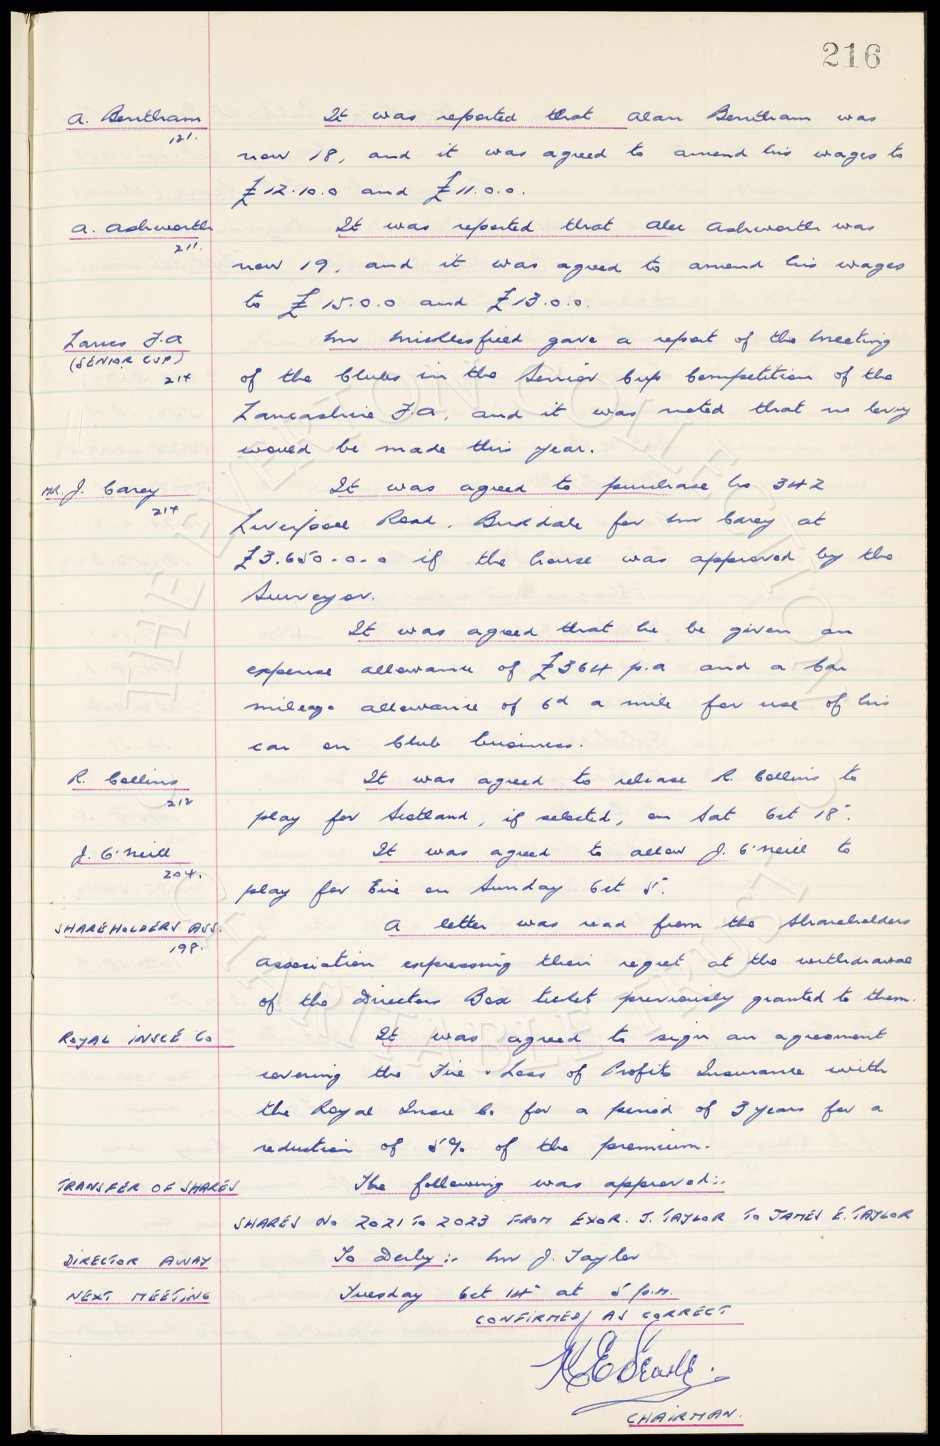 216
A. Bentham
121.
It was reported that Alan Bentham was
now 18, and it was agreed to amend his wages to
£12.10.0 and £11.0.0.
A. Ashworth
211.
It was reported that Alec Ashworth was
now 19, and it was agreed to amend his wages
to £15.0.0 and £13.0.0.
Lancs F.A
(SENIOR CUP)
214
Mr Micklesfield gave a report of the meeting
of the Clubs in the Senior Cup Competition of the
Lancashire F.A, and it was noted that no levy
would be made this year.
MR. J. Carey
214
It was agreed to purchase No 342
Liverpool Road, Birkdale for Mr Carey at
£3.650.0.0 if the house was approved by the
Surveyor.
It was agreed that he be given an
expense allowance of £364 p.a and a Car
mileage allowance of 6d a mile for use of his
car on Club business.
R. Collins
212
It was agreed to release R. Collins to
play for Scotland, if selected, on Sat Oct 18".
J. O'Neill
204.
It was agreed to allow J. O'Neill to
play for Eire on Sunday Oct 5".
SHAREHOLDERS ASS.
198.
A letter was read from the Shareholders
Association expressing their regret at the withdrawal
of the Directors Box ticket previously granted to them.
ROYAL INSCE Co
It was agreed to sign an agreement
covering the Fire & Loss of Profits Insurance with
the Royal Insce Co. for a period of 3 years for a
reduction of 5% of the premium.
TRANSFER OF SHARES
The following was approved:-
SHARES No 2021 To 2023 FROM EXOR. J. TAYLOR To JAMES E. TAYLOR
DIRECTOR AWAY
To Derby:- Mr J. Taylor
NEXT MEETING
Tuesday Oct 14" at 5 p.m.
CONFIRMED AS CORRECT
CHAIRMAN.
THE EVERTON COLLECTION
CHARITABLE TRUST